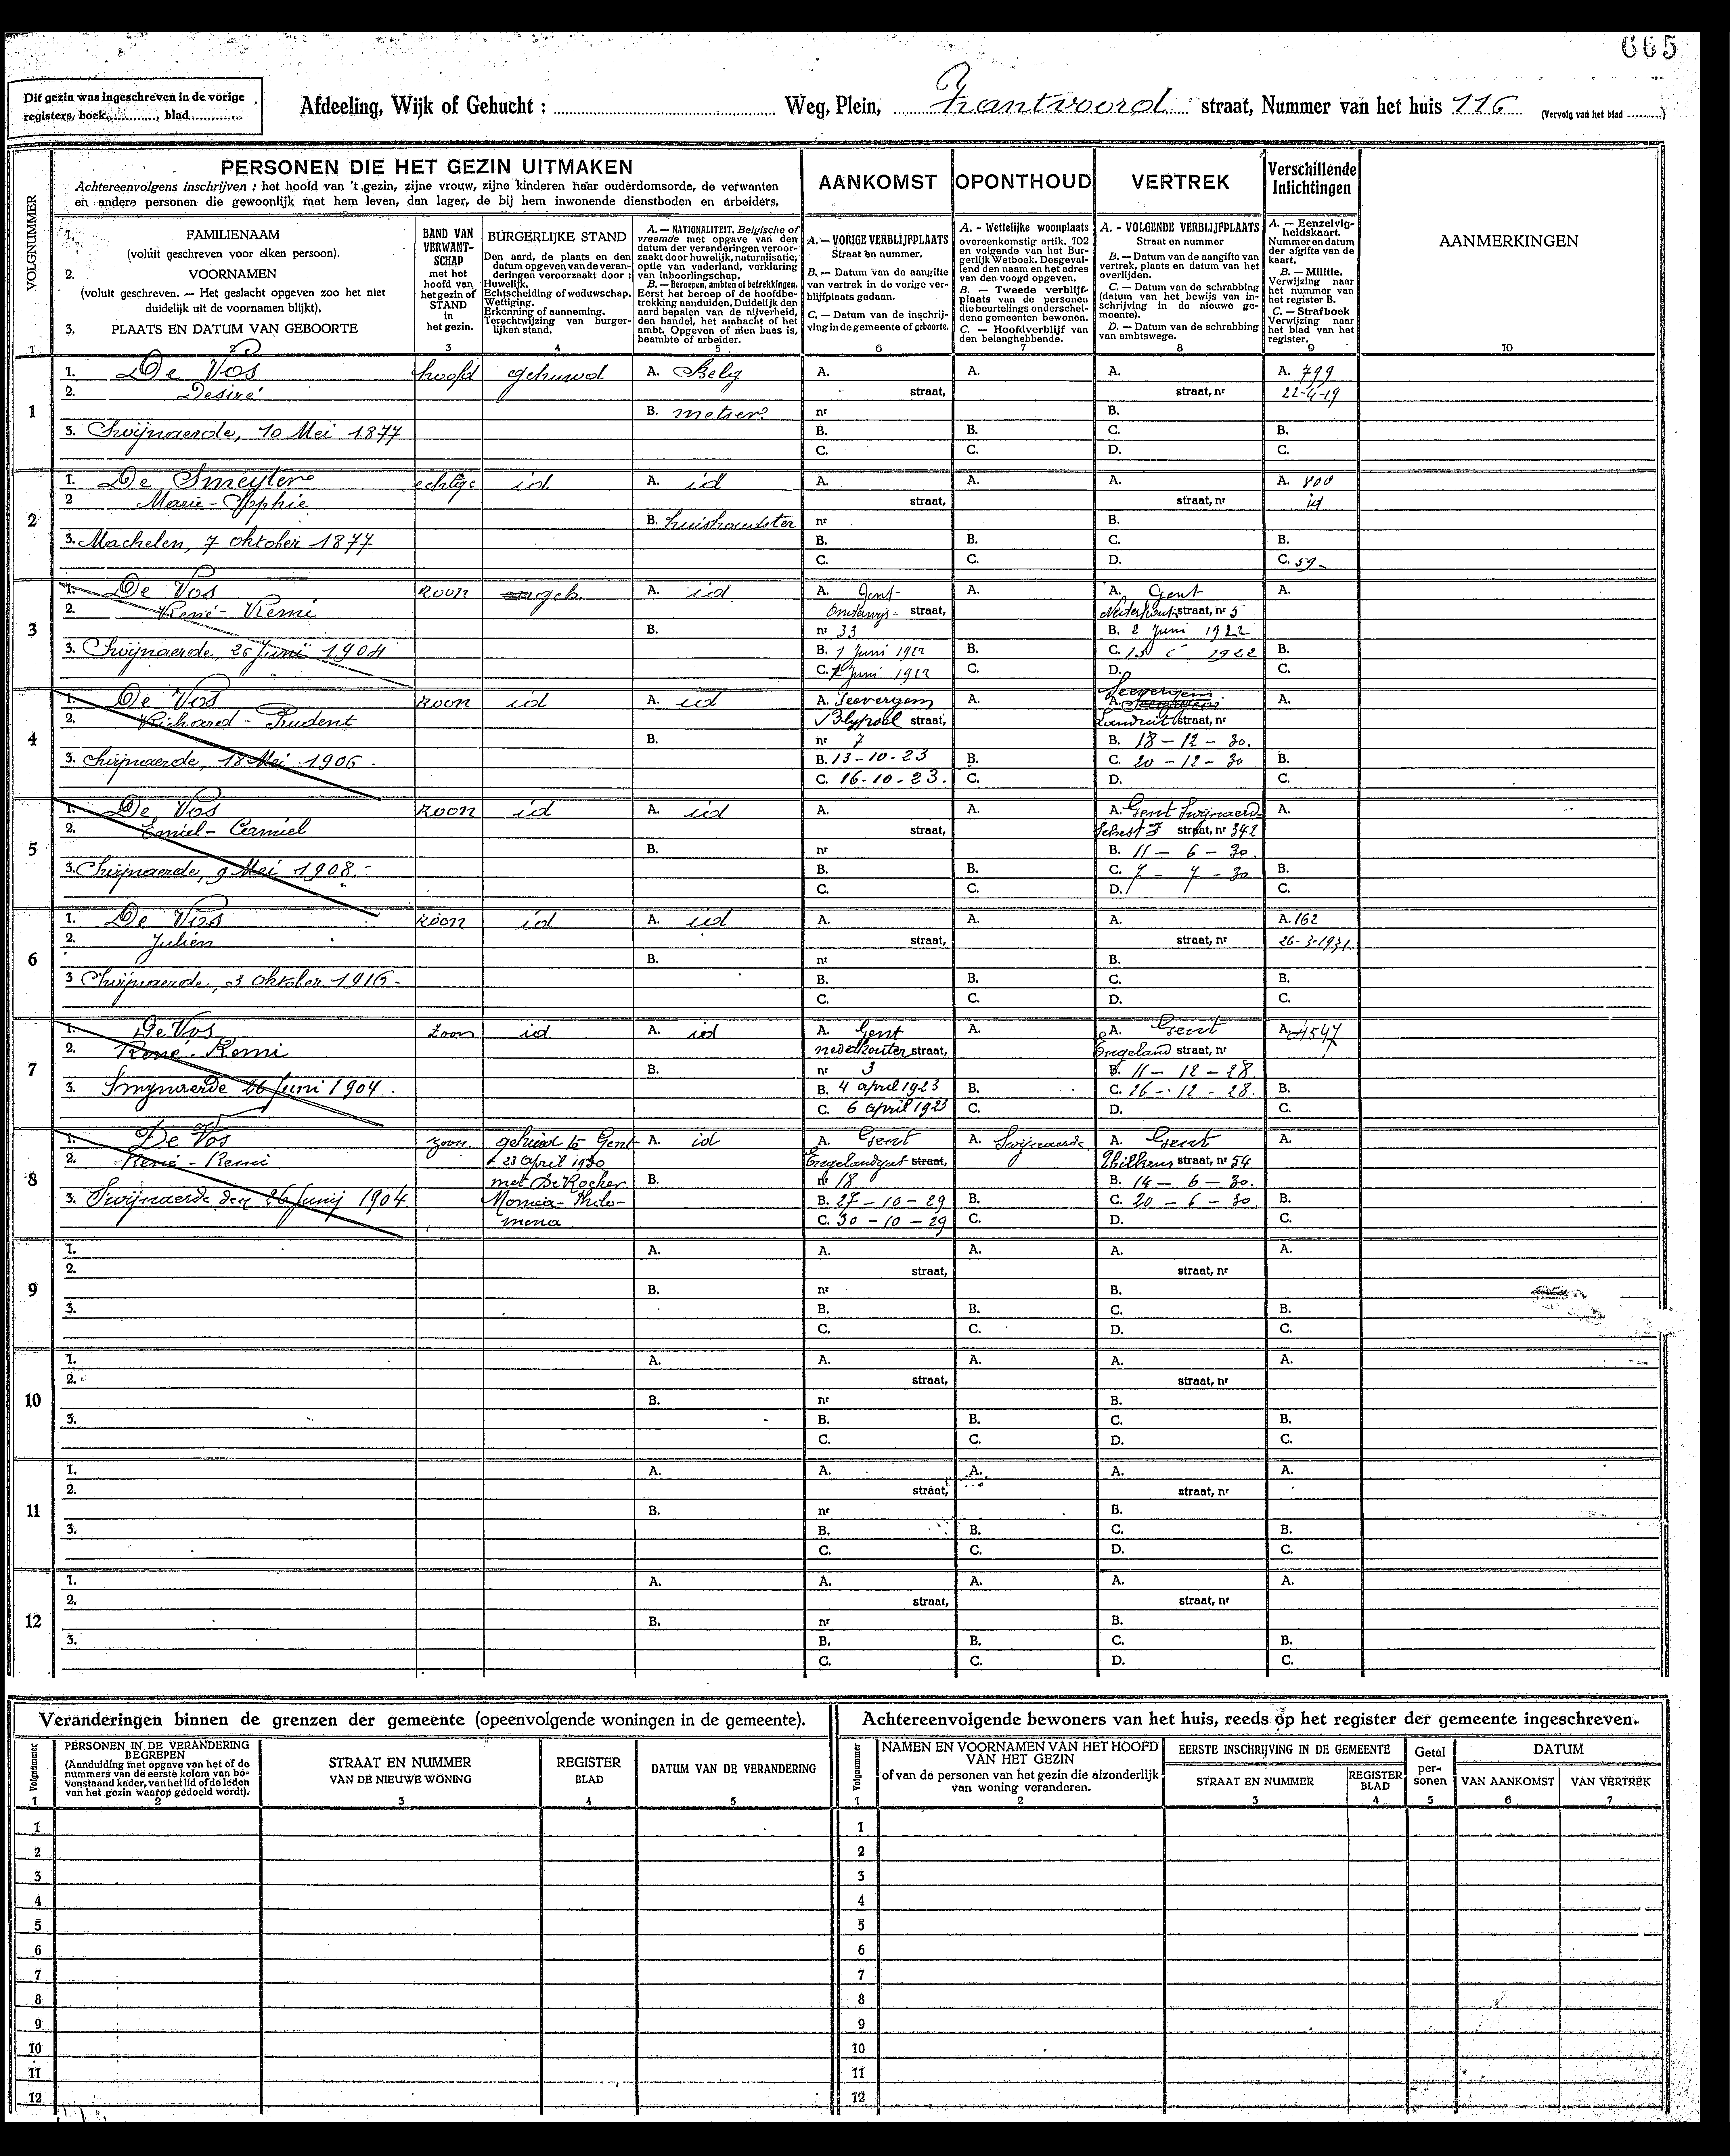 665
Dit gezin was ingeschreven in de vorige
registers, boek, blad
Afdeeling, Wijk of Gehucht : Weg, Plein, Zantvoord straat, Nummer van het huis 116 (Vervolg van het blad )
PERSONEN DIE HET GEZIN UITMAKEN
Achtereenvolgens inschrijven : het hoofd van 't gezin, zijne vrouw, zijne kinderen naar ouderdomsorde, de verwanten
en andere personen die gewoonlijk met hem leven, dan lager, de bij hem inwonende dienstboden en arbeiders.
AANKOMST
OPONTHOUD
VERTREK
Verschillende
Inlichtingen
VOLGNUMMER
1
1. FAMILIENAAM
(voluit geschreven voor elken persoon).
2. VOORNAMEN
(voluit geschreven. — Het geslacht opgeven zoo het niet
duidelijk uit de voornamen blijkt).
3. PLAATS EN DATUM VAN GEBOORTE
2
BAND VAN
VERWANT-
SCHAP
met het
hoofd van
het gezin of
STAND
in
het gezin.
3
BURGERLIJKE STAND
Den aard, de plaats en den
datum opgeven van de veran-
deringen veroorzaakt door :
Huwelijk.
Echtscheiding of weduwschap.
Wettiging.
Erkenning of aanneming.
Terechtwijzing van burger-
lijken stand.
4
A. — NATIONALITEIT. Belgische of
vreemde met opgave van den
datum der veranderingen veroor-
zaakt door huwelijk, naturalisatie,
optie van vaderland, verklaring
van inboorlingschap.
B. — Beroepen, ambten of betrekkingen.
Eerst het beroep of de hoofdbe-
trekking aanduiden. Duidelijk den
aard bepalen van de nijverheid,
den handel, het ambacht of het
ambt. Opgeven of men baas is,
beambte of arbeider.
5
A. — VORIGE VERBLIJFPLAATS
Straat en nummer.
B. — Datum van de aangifte
van vertrek in de vorige ver-
blijfplaats gedaan.
C. — Datum van de inschrij-
ving in de gemeente of geboorte.
6
A. - Wettelijke woonplaats
overeenkomstig artik. 102
en volgende van het Bur-
gerlijk Wetboek. Desgeval-
lend den naam en het adres
van den voogd opgeven.
B. — Tweede verblijf-
plaats van de personen
die beurtelings onderschei-
dene gemeenten bewonen.
C. — Hoofdverblijf van
den belanghebbende.
7
A. - VOLGENDE VERBLIJFPLAATS
Straat en nummer
B. — Datum van de aangifte van
vertrek, plaats en datum van het
overlijden.
C. — Datum van de schrabbing
(datum van het bewijs van in-
schrijving in de nieuwe ge-
meente).
D. — Datum van de schrabbing
van ambtswege.
8
A. — Eenzelvig-
heidskaart.
Nummer en datum
der afgifte van de
kaart.
B. — Militie.
Verwijzing naar
het nummer van
het register B.
C. — Strafboek
Verwijzing naar
het blad van het
register.
9
AANMERKINGEN
10
1
1. De Vos hoofd gehuwd A. Belg A. A. A. A. 799
2. Desiré straat, straat, nr 22-4-19
B. metser nr B.
3. Swijnaerde, 10 Mei 1877 B. B. C. B.
C. C. D. C.
2
1. De Smeyter echtge id A. id A. A. A. A. 800
2 Marie-Sophie straat, straat, nr id
B. huishoudster nr B.
3. Machelen, 7 oktober 1877 B. B. C. B.
C. C. D. C. 59
3
1. De Vos zoon ongeh. A. id A. Gent A. A. Gent A.
2. René-Remi straat, straat, nr 5
B. nr 33 B. 2 Juni 1922
3. Swijnaerde, 26 Juni 1904 B. 1 Juni 1922 B. C. 1922 B.
C. Juni 1922 C. D. C.
4
1. De Vos zoon id A. id A. Seevergem A. A. Seevergem A.
2. Richard-Prudent Blypoel straat, straat, nr
B. nr 7 B. 18-12-30.
3. Swijnaerde, 18 Mei 1906. B. 13-10-23 B. C. 20-12-30 B.
C. 16-10-23. C. D. C.
5
1. De Vos zoon id A. id A. A. A. Gent Swijnaerd A.
2. Emiel-Camiel straat, straat, nr 342
B. nr B. 11-6-30.
3. Swijnaerde, 9 Mei 1908.- B. B. C. 7-7-30 B.
C. C. D. C.
6
1. De Vos zoon id A. id A. A. A. A. 162
2. Julien straat, straat, nr 26-3-1931
B. nr B.
3 Swijnaerde, 3 Oktober 1916- B. B. C. B.
C. C. D. C.
7
1. De Vos zoon id A. id A. Gent A. A. Gent A. 4547
2. René-Remi nederkouter straat, Engeland straat, nr
B. nr 3 B. 11-12-28.
3. Swynaerde 26 Juni 1904. B. 4 april 1923 B. C. 26-12-28. B.
C. 6 april 1923 C. D. C.
8
1. De Vos zoon gehuwd te Gent A. id A. Gent A. Swijnaerde A. Gent A.
2. René-Remi 23 april 1930 Engelandgat straat, straat, nr 54
met De Kocker B. nr 18 B. 14-6-30.
3. Swijnaerde den 26 Junij 1904 Monica-Philo- B. 27-10-29 B. C. 20-6-30. B.
mena. C. 30-10-29 C. D. C.
9
1. A. A. A. A. A.
2. straat, straat, nr
B. nr B.
3. B. B. C. B.
C. C. D. C.
10
1. A. A. A. A. A.
2. straat, straat, nr
B. nr B.
3. B. B. C. B.
C. C. D. C.
11
1. A. A. A. A. A.
2. straat, straat, nr
B. nr B.
3. B. B. C. B.
C. C. D. C.
12
1. A. A. A. A. A.
2. straat, straat, nr
B. nr B.
3. B. B. C. B.
C. C. D. C.
Veranderingen binnen de grenzen der gemeente (opeenvolgende woningen in de gemeente).
Volgnummer
1
PERSONEN IN DE VERANDERING
BEGREPEN
(Aanduiding met opgave van het of de
nummers van de eerste kolom van bo-
venstaand kader, van het lid of de leden
van het gezin waarop gedoeld wordt).
2
STRAAT EN NUMMER
VAN DE NIEUWE WONING
3
REGISTER
BLAD
4
DATUM VAN DE VERANDERING
5
1
2
3
4
5
6
7
8
9
10
11
12
Achtereenvolgende bewoners van het huis, reeds op het register der gemeente ingeschreven.
Volgnummer
1
NAMEN EN VOORNAMEN VAN HET HOOFD
VAN HET GEZIN
of van de personen van het gezin die afzonderlijk
van woning veranderen.
2
EERSTE INSCHRIJVING IN DE GEMEENTE
STRAAT EN NUMMER
3
REGISTER
BLAD
4
Getal
per-
sonen
5
DATUM
VAN AANKOMST
6
VAN VERTREK
7
1
2
3
4
5
6
7
8
9
10
11
12